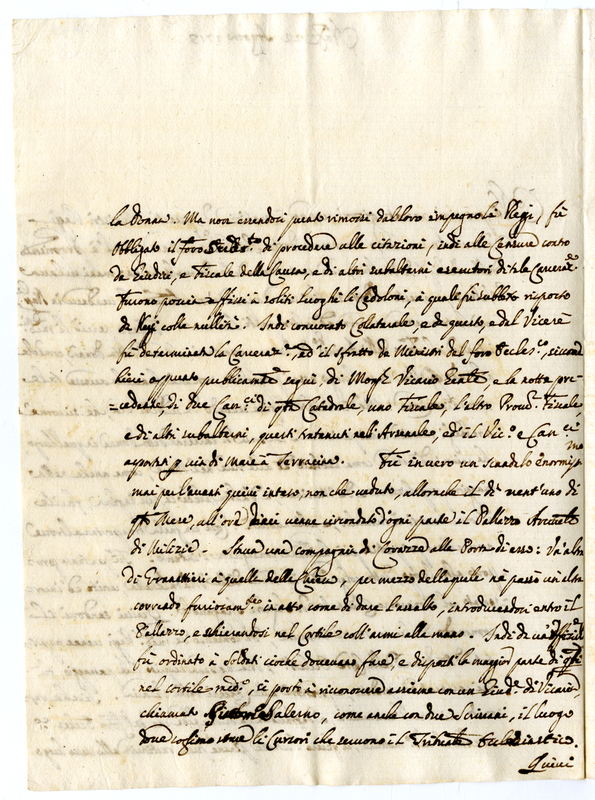 la Donna. Ma non essendosi punto rimossi dal loro impegno li Regj, fu
obbligato il foro Eccles.co di procedere alle citazioni, indi alle Censure contro
de Giudici, e Fiscale della Causa, e di altri subalterni esecutori di d.a Carceraz.e
Furono poscia affissi à soliti luoghi li Cedoloni, à quali fù subbito risposto
de Regj colle nullità. Indi convocato Collaterale, e da questo, e dal Vicerè
fù determinata la Carceraz.e, ed il sfratto de Ministri del foro Eccles.co, siccome
hieri appunto publicamte seguì, di Mons.r Vicario Gnle, e la notte pre-
=cedente, di due Can.ci di qta Catedrale, uno Fiscale, l'altro Provic. Fiscale,
e di altri subalterni, questi trattenuti nell'Arsenale, ed il Vic.o e Can.ci
asportati p via di Mare à Terracina. Fù in vero un scandalo enormiss.mo
mai per l'avanti quivi inteso, non che veduto, allorche il dì vent'uno di
qto Mese, all'ore dieci venne circondato d'ogni parte il Palazzo Arcivle
di Milizie. Stava una compagnia di Corazze alla Porta di esso: Un'altra
di Granattieri à quella della Chiesa, per mezzo della quale ne passò un'altra
correndo furiosam.te in atto come di dare l'assalto, introducendosi entro il
Palazzo, e schierandosi nel Cortile coll'armi alla mano. Indi da un'Offiziale
fù ordinato à Soldati cioche dovevano fare, e disposti la maggior parte di qti
nel cortile med.o, si portò à riconoscere assieme con un Giud.e di Vicaria
chiamato Salerno, come anche con due Scrivani, il luogo
dove li Cursori che servono il Tribunale Ecclesiastico.
Quivi